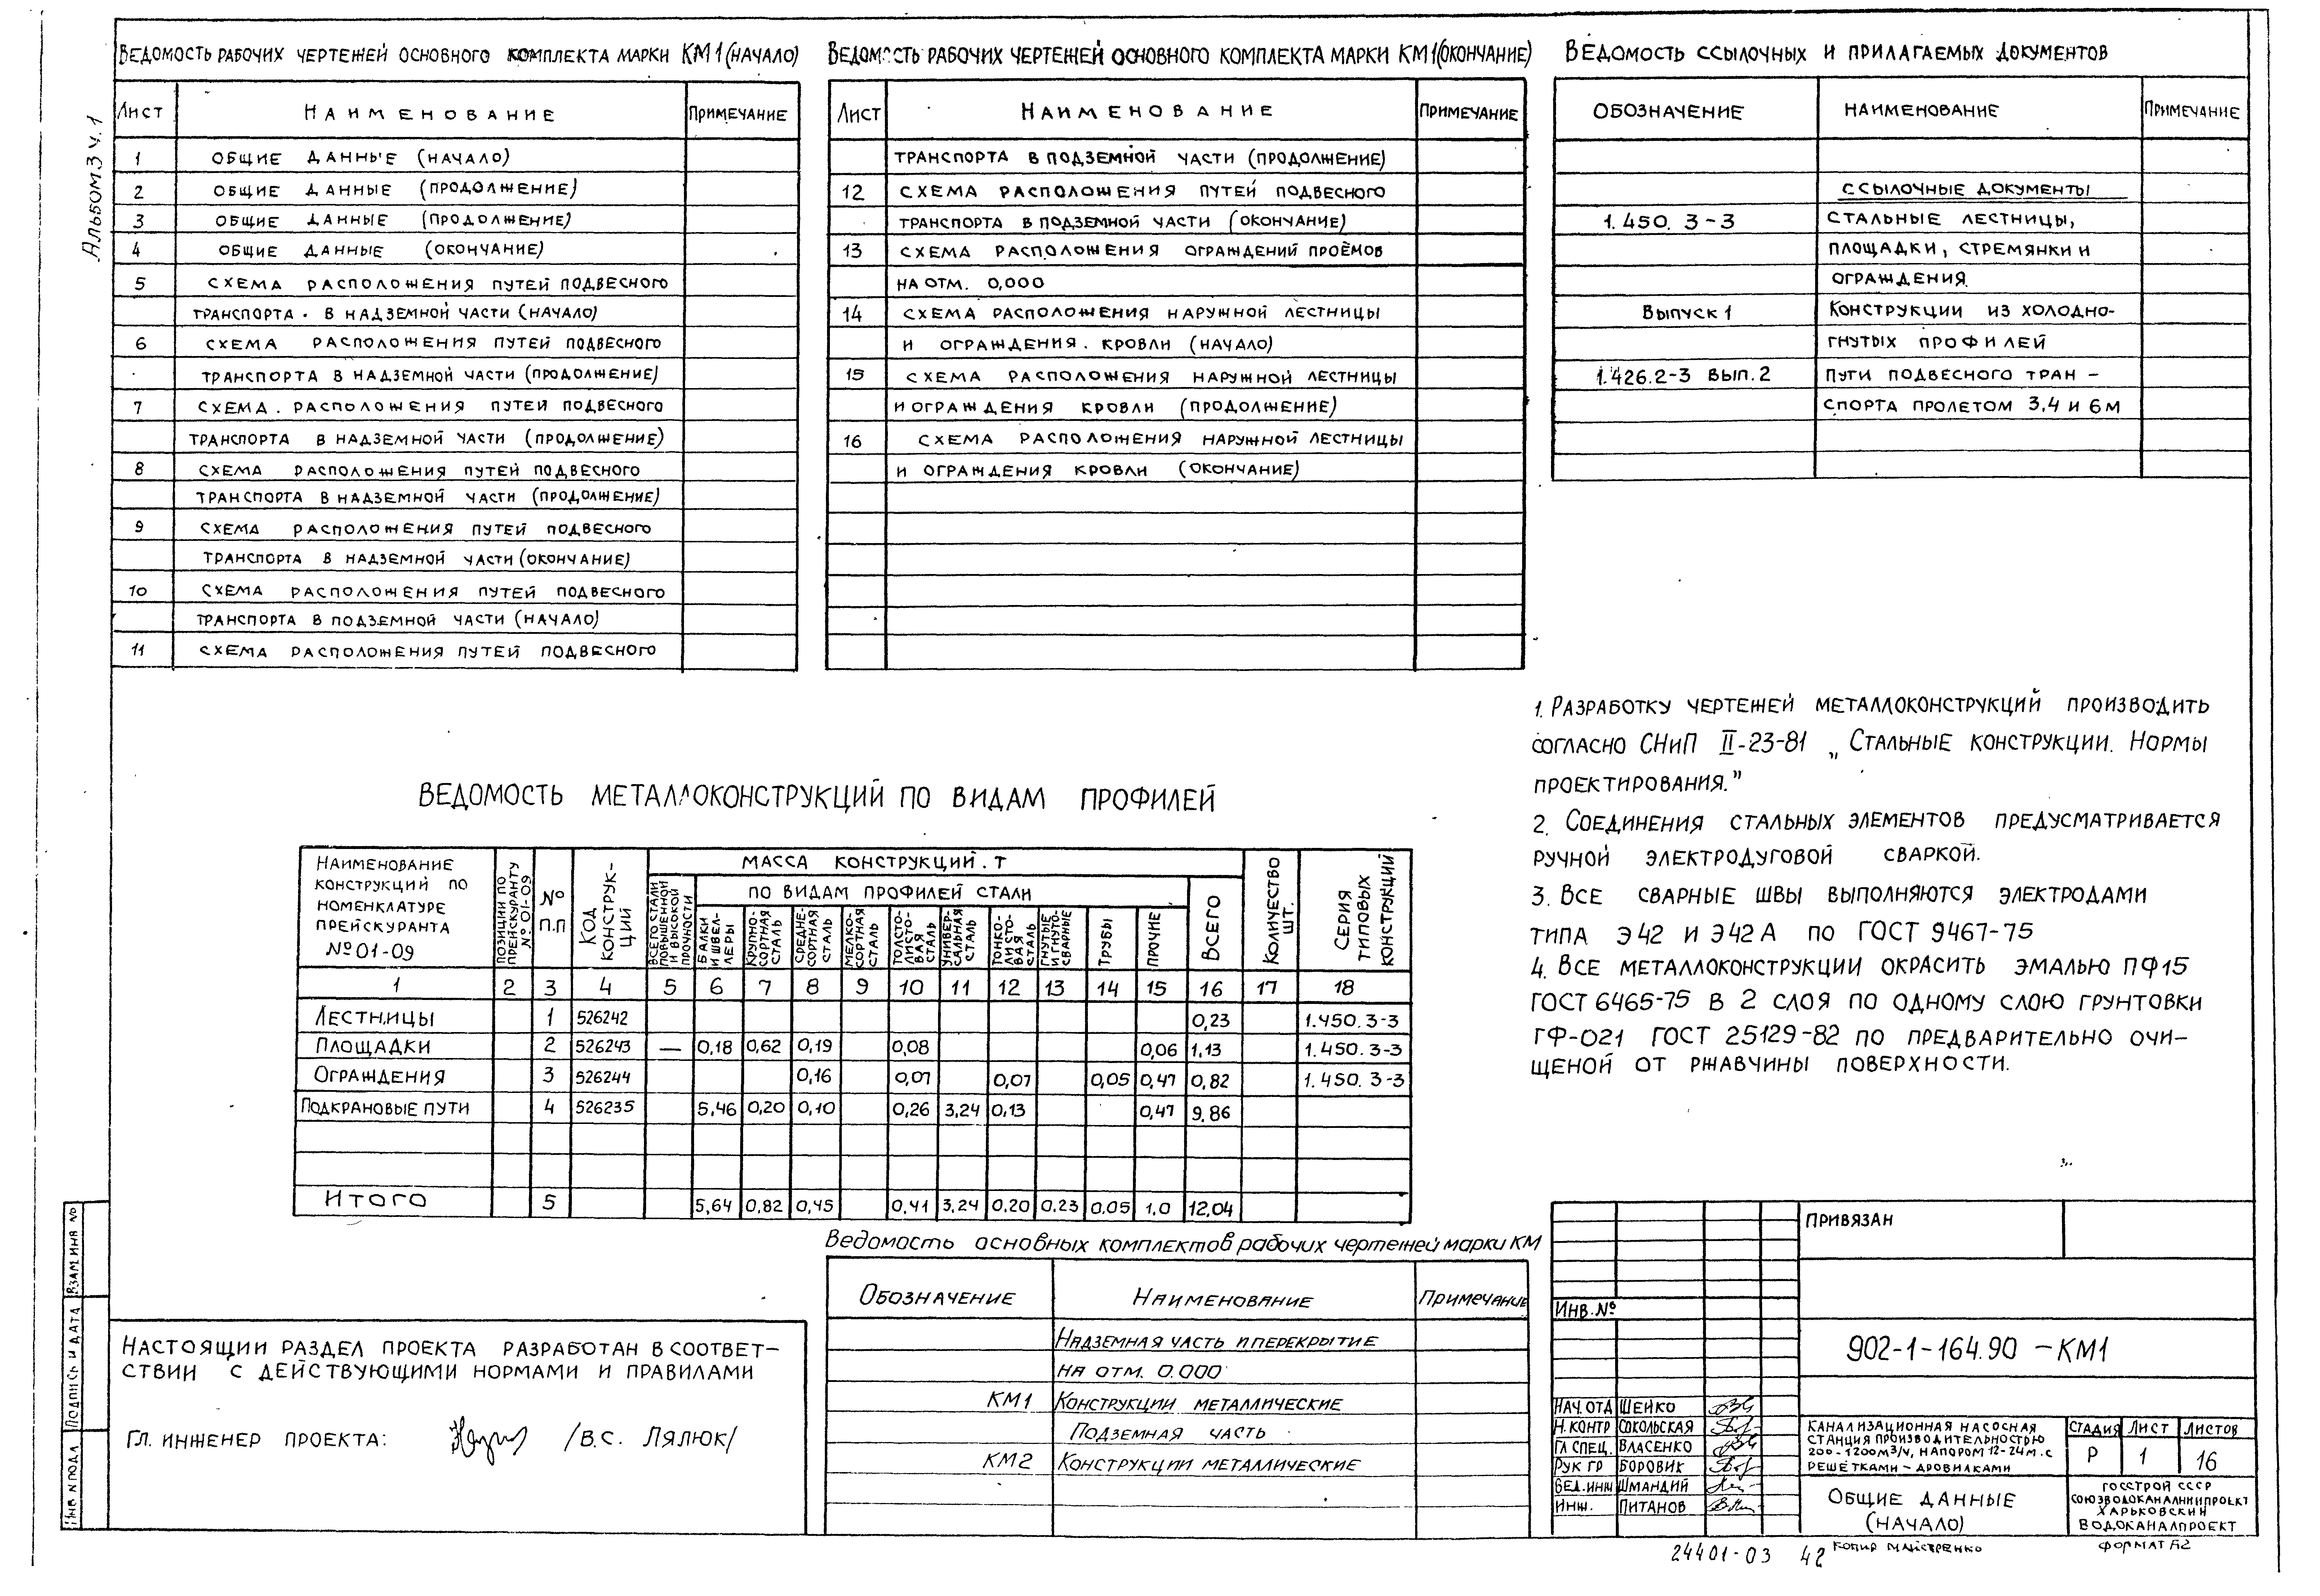 Альбом 3 ч.1
Ведомость рабочих чертежей основного комплекта марки КМ1 (начало)
Лист Наименование Примечание
1 общие данные (начало)
2 общие данные (продолжение)
3 общие данные (продолжение)
4 общие данные (окончание)
5 схема расположения путей подвесного
транспорта в надземной части (начало)
6 схема расположения путей подвесного
транспорта в надземной части (продолжение)
7 схема расположения путей подвесного
транспорта в надземной части (продолжение)
8 схема расположения путей подвесного
транспорта в надземной части (продолжение)
9 схема расположения путей подвесного
транспорта в надземной части (окончание)
10 схема расположения путей подвесного
транспорта в подземной части (начало)
11 схема расположения путей подвесного
Ведомость рабочих чертежей основного комплекта марки КМ1 (окончание)
Лист Наименование Примечание
транспорта в подземной части (продолжение)
12 схема расположения путей подвесного
транспорта в подземной части (окончание)
13 схема расположения ограждений проёмов
на отм. 0,000
14 схема расположения наружной лестницы
и ограждения. кровли (начало)
15 схема расположения наружной лестницы
и ограждения кровли (продолжение)
16 схема расположения наружной лестницы
и ограждения кровли (окончание)
Ведомость ссылочных и прилагаемых документов
Обозначение Наименование Примечание
ссылочные документы
1.450.3-3 стальные лестницы,
площадки, стремянки и
ограждения
Выпуск 1 Конструкции из холодно-
гнутых профилей
1.426.2-3 вып.2 пути подвесного тран-
спорта пролетом 3,4 и 6м
1. Разработку чертежей металлоконструкций производить
согласно СНиП II-23-81 „Стальные конструкции. Нормы
проектирования."
2. Соединения стальных элементов предусматривается
ручной электродуговой сваркой.
3. Все сварные швы выполняются электродами
типа Э42 и Э42А по ГОСТ 9467-75
4. Все металлоконструкции окрасить эмалью ПФ15
ГОСТ 6465-75 в 2 слоя по одному слою грунтовки
ГФ-021 ГОСТ 25129-82 по предварительно очи-
щеной от ржавчины поверхности.
Ведомость металлоконструкций по видам профилей
Наименование конструкций по номенклатуре прейскуранта №01-09
Позиции по прейскуранту № 01-09
№ п.п
Код конструк-ций
Масса конструкций. т
Всего стали повышенной и высокой прочности
по видам профилей стали
Балки и швел-леры
Крупно-сортная сталь
Средне-сортная сталь
Мелко-сортная сталь
Толсто-листо-вая сталь
Универ-сальная сталь
Тонко-листо-вая сталь
Гнутые и гнуто-сварные
Трубы
Прочие
Всего
Количество шт.
Серия типовых конструкций
1 2 3 4 5 6 7 8 9 10 11 12 13 14 15 16 17 18
Лестницы 1 526242 0,23 1.450.3-3
Площадки 2 526243 — 0,18 0,62 0,19 0,08 0,06 1,13 1.450.3-3
Ограждения 3 526244 0,16 0,07 0,07 0,05 0,47 0,82 1.450.3-3
Подкрановые пути 4 526235 5,46 0,20 0,10 0,26 3,24 0,13 0,47 9,86
Итого 5 5,64 0,82 0,45 0,41 3,24 0,20 0,23 0,05 1,0 12,04
Ведомость основных комплектов рабочих чертежей марки КМ
Обозначение Наименование Примечание
Надземная часть и перекрытие
на отм. 0.000
КМ1 Конструкции металлические
Подземная часть
КМ2 Конструкции металлические
Настоящии раздел проекта разработан в соответ-
ствии с действующими нормами и правилами
Гл. инженер проекта: /В.С. Лялюк/
Взам инв №
Подпись и дата
Инв № подл
Привязан
Инв. №
902-1-164.90 -КМ1
Нач. отд Шейко
Н. контр Сокольская
Гл спец. Власенко
Рук гр Боровик
Вед. инж Шмандий
Инж. Питанов
Канализационная насосная
станция производительностью
200-1200м3/ч, напором 12-24м. с
решётками-дробилками
Стадия Лист Листов
Р 1 16
Общие данные
(начало)
Госстрой СССР
Союзводоканалниипроект
Харьковский
Водоканалпроект
24401-03 42 копир Майстренко формат А2